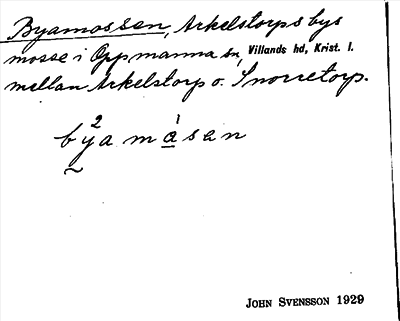 Byamossen, Arkelstorps bys
mosse i Oppmanna sn, Villands hd, Krist. l.
mellan Arkelstorp o. Snorretorp.
b²yamåsen
JOHN SVENSSON 1929